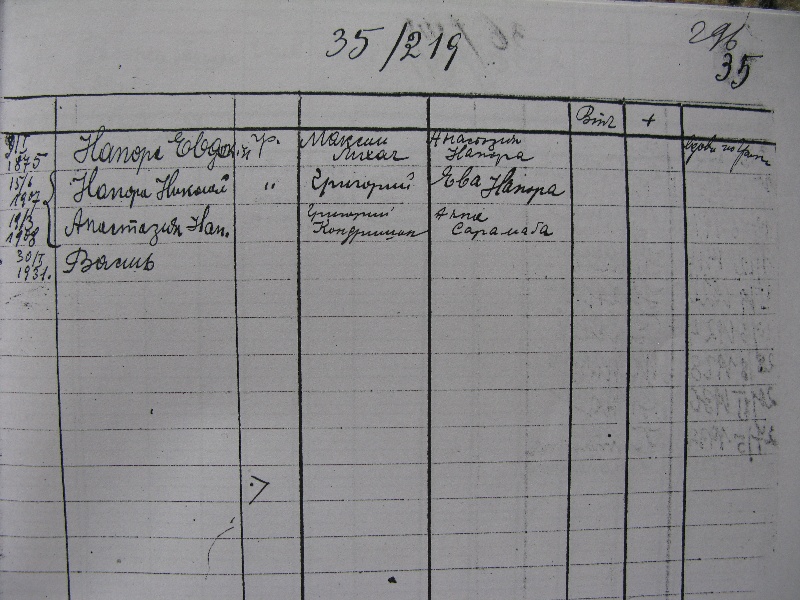 35/219
296
35
Вінч +
1875 Напора Евдокія гр. Максим Михач Анастазія Напора вдова по Григ
15/6 1907 Напора Николай " Григорий Ева Напора
19/3 1908 Анастазія Нап. Григорий Кондришин Анна Сарамаба
30/I 1931. Василь